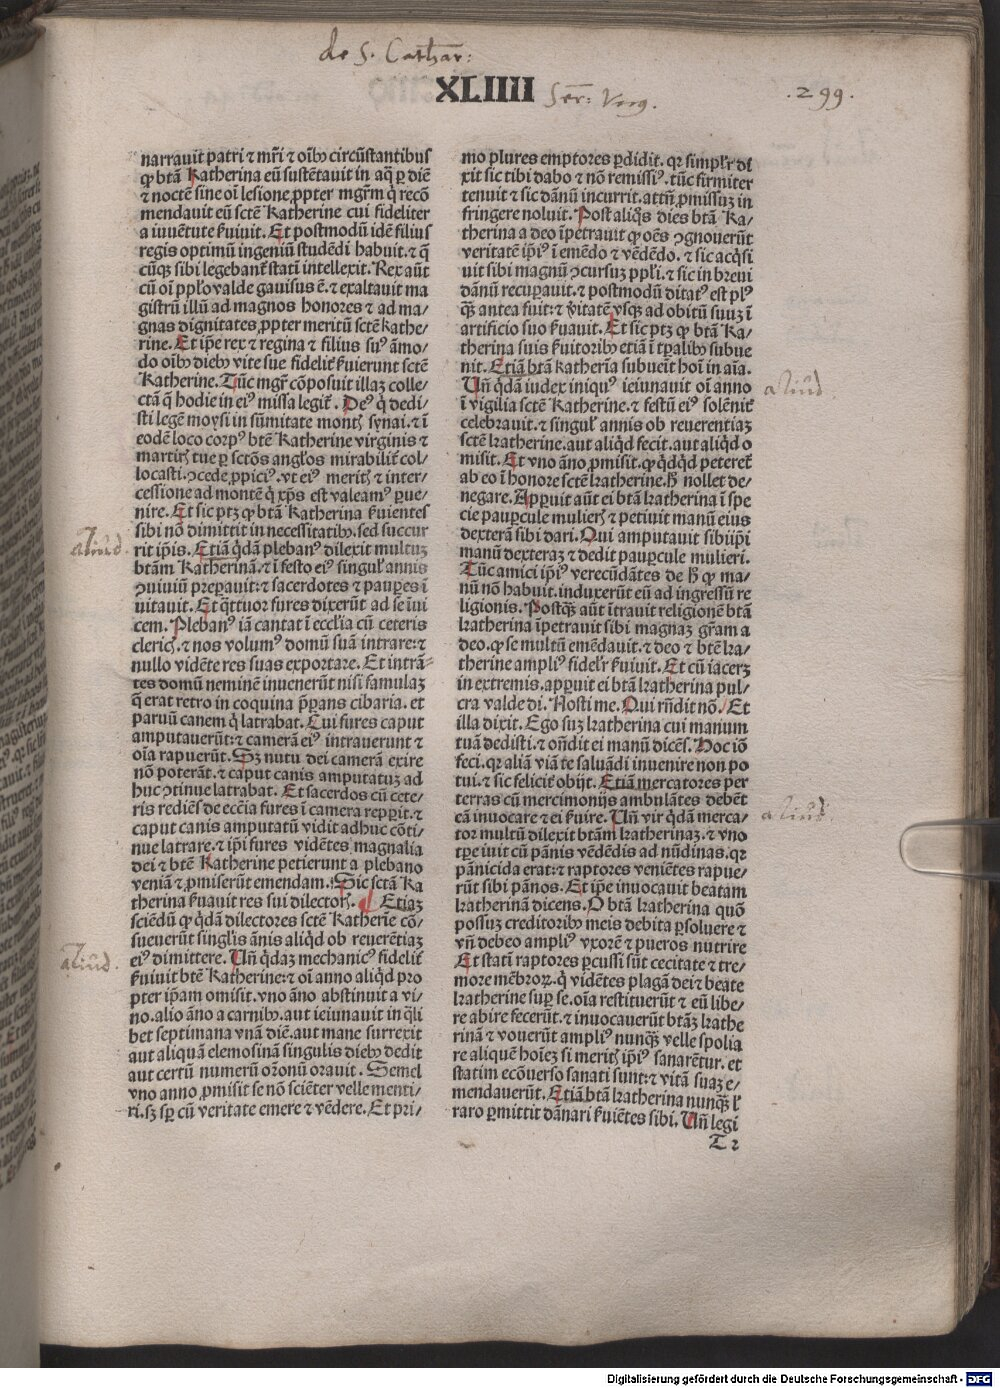 de S. Cathar:
XLIIII
Ser: Virg.
.299.
narrauit patri ⁊ mr̄i ⁊ oībꝰ circūstantibus
ꝙ btā Katherina eū sustētauit in aq̄ ꝑ diē
⁊ noctē sine oī lesione ꝓpter mgr̄m q̇ recō
mendauit eū sctē Katherine cui fideliter
a iuuētute ẜuiuit. Et postmodū idē filius
regis optimū ingeniū studēdi habuit. ⁊ q̄
cūqꝫ sibi legebanť statī intellexit. Rex aūt
cū oī ppl̓o valde gauisus ē. ⁊ exaltauit ma
gistrū illū ad magnos honores ⁊ ad ma/
gnas dignitates ꝓpter meritū sctē kathe/
rine. Et ip̄e rex ⁊ regina ⁊ filius suꝰ āmo/
do oībꝰ diebꝰ vite sue fidelit̓ ẜuierunt sctē
Katherine. Tūc mgr̄ cōposuit illaꝫ colle/
ctā q̄ hodie in eiꝰ missa legit̓. Deꝰ q̇ dedi/
sti legē moysi in sūmitate montꝭ synai. ⁊ ī
eodē loco corpꝰ btē Katherine virginis ⁊
martirꝭ tue ꝑ sctōs angl̓os mirabilit̓ col/
locasti. ꝯcede ꝓpiciꝰ. vt eiꝰ meritꝭ ⁊ inter/
cessione ad montē q̇ xp̄s est valeamꝰ ꝑue/
nire. Et sic ptꝫ ꝙ btā Katherina ẜuientes
sibi nō dimittit in necessitatibꝰ. sed succur
rit ip̄is. Etiā q̇dā plebanꝰ dilexit multuꝫ
btām Katherinā. ⁊ ī festo eiꝰ singul̓ annis
ꝯuiuiū preꝑauit. ⁊ sacerdotes ⁊ pauꝑes ī
uitauit. Et q̄ttuor fures dixerūt ad se īui
cem. Plebanꝰ iā cantat ī eccl̓ia cū ceteris
clericꝭ. ⁊ nos volumꝰ domū suā intrare: ⁊
nullo vidēte res suas exportare. Et intrā/
tes domū neminē inuenerūt nisi famulaꝫ
q̄ erat retro in coquina p̄ꝑans cibaria. et
paruū canem q̇ latrabat. Cui fures caput
amputauerūt: ⁊ camerā eiꝰ intrauerunt ⁊
oīa rapuerūt. Sꝫ nutu dei camerā exire
nō poterāt. ⁊ caput canis amputatuꝫ ad
huc ꝯtinue latrabat. Et sacerdos cū cete/
ris rediēs de eccīa fures ī camera repꝑit. ⁊
caput canis amputatū vidit adhuc cōti/
nue latrare. ⁊ ip̄i fures vidētes magnalia
dei ⁊ btē Katherine petierunt a plebano
veniā ⁊ ꝓmiserūt emendam. Sic sctā Ka
therina ẜuauit res sui dilectorꝭ. ¶ Etiaꝫ
sciēdū ꝙ q̇dā dilectores sctē Katherīe cō/
sueuerūt singl̓is ānis aliq̇d ob reuerētiaꝫ
eiꝰ dimittere. Vn̄ q̇daꝫ mechanicꝰ fidelit̓
ẜuiuit btē Katherine: ⁊ oī anno aliq̇d pro
pter ip̄am omisit. vno āno abstinuit a vi/
no. alio āno a carnibꝰ. aut ieiunauit in q̇li
bet septimana vnā diē. aut mane surrexit
aut aliquā elemosinā singulis diebꝰ dedit
aut certū numerū or̄onū orauit. Semel
vno anno ꝓmisit se nō sciēter velle menti/
ri. sꝫ sꝑ cū veritate emere ⁊ vēdere. Et pri/
mo plures emptores ꝑdidit. qꝛ simpl̓r di
xit sic tibi dabo ⁊ nō remissiꝰ. tūc firmiter
tenuit ⁊ sic dānū incurrit. attn̄ ꝓmissuꝫ in
fringere noluit. Post aliq̄s dies btā Ka/
therina a deo īpetrauit ꝙ oēs ꝯgnouerūt
veritatē ip̄iꝰ ī emēdo ⁊ vēdēdo. ⁊ sic acq̇si
uit sibi magnū ꝯcursuꝫ ppl̓i. ⁊ sic in breui
dānū recuꝑauit. ⁊ postmodū ditatꝰ est plꝰ
q̄ꝫ antea fuit: ⁊ v̓itatē vsqꝫ ad obitū suuꝫ ī
artificio suo ẜuauit. Et sic ptꝫ ꝙ btā Ka/
therina suis ẜuitoribꝰ etiā ī tꝑalibꝰ subue
nit. Etiā btā katherīa subueīt hoī in aīa.
Vn̄ q̇dā iudex iniquꝰ ieiunauit oī anno
ī vigilia sctē Katherine. ⁊ festū eiꝰ solēnit̓
celebrauit. ⁊ singul̓ annis ob reuerentiaꝫ
sctē katherine. aut aliq̇d fecit. aut aliq̇d o
misit. Et vno āno ꝓmisit. ꝙ q̇dq̇d peteret̓
ab eo ī honore sctē katherine. hͦ nollet de/
negare. Apꝑuit aūt ei btā katherina ī spe
cie pauꝑcule mulierꝭ ⁊ petiuit manū eius
dexterā sibi dari. Qui amputauit sibiip̄i
manū dexteraꝫ ⁊ dedit pauꝑcule mulieri.
Tūc amici ip̄iꝰ verecūdātes de hͦ ꝙ ma/
nū nō habuit. induxerūt eū ad ingressū re
ligionis. Postq̄ꝫ aūt ītrauit religionē btā
katherina īpetrauit sibi magnaꝫ gr̄am a
deo. ꝙ se multū emēdauit. ⁊ deo ⁊ btē ka/
therine ampliꝰ fidel̓r ẜuiuit. Et cū iacerꝫ
in extremis. apꝑuit ei btā katherina pul/
cra valde di. Nosti me. Qui rn̄dit nō. Et
illa dixit. Ego suꝫ katherina cui manum
tuā dedisti. ⁊ on̄dit ei manū dicēs. Hoc iō
feci. qꝛ aliā viā te saluādi inuenire non po
tui. ⁊ sic felicit̓ obijt. Etiā mercatores per
terras cū mercimonijs ambulātes debēt
eā inuocare ⁊ ei ẜuire. Vn̄ vir q̇dā merca/
tor multū dilexit btām katherinaꝫ. ⁊ vno
tꝑe iuit cū pānis vēdēdis ad nūdinas. qꝛ
pānicida erat: ⁊ raptores veniētes rapue/
rūt sibi pānos. Et ip̄e inuocauit beatam
katherinā dicens. O btā katherina quō
possuꝫ creditoribꝰ meis debita ꝑsoluere ⁊
vn̄ debeo ampliꝰ vxorē ⁊ pueros nutrire
Et statī raptores ꝑcussi sūt cecitate ⁊ tre/
more mēbroꝝ. q̇ vidētes plagā dei ⁊ beate
katherine suꝑ se. oīa restituerūt ⁊ eū libe/
re abire fecerūt. ⁊ inuocauerūt btāꝫ kathe
rinā ⁊ vouerūt ampliꝰ nunq̄ꝫ velle spolia
re aliquē hoīeꝫ si meritꝭ ip̄iꝰ sanarētur. et
statim ecōuerso sanati sunt: ⁊ vitā suaꝫ e/
mendauerūt. Etiā btā katherina nunq̄ꝫ l̓
raro ꝑmittit dānari ẜuiētes sibi. Vn̄ legi
T 2
aliud.
aliud.
aliud.
aliud.
Digitalisierung gefördert durch die Deutsche Forschungsgemeinschaft - DFG